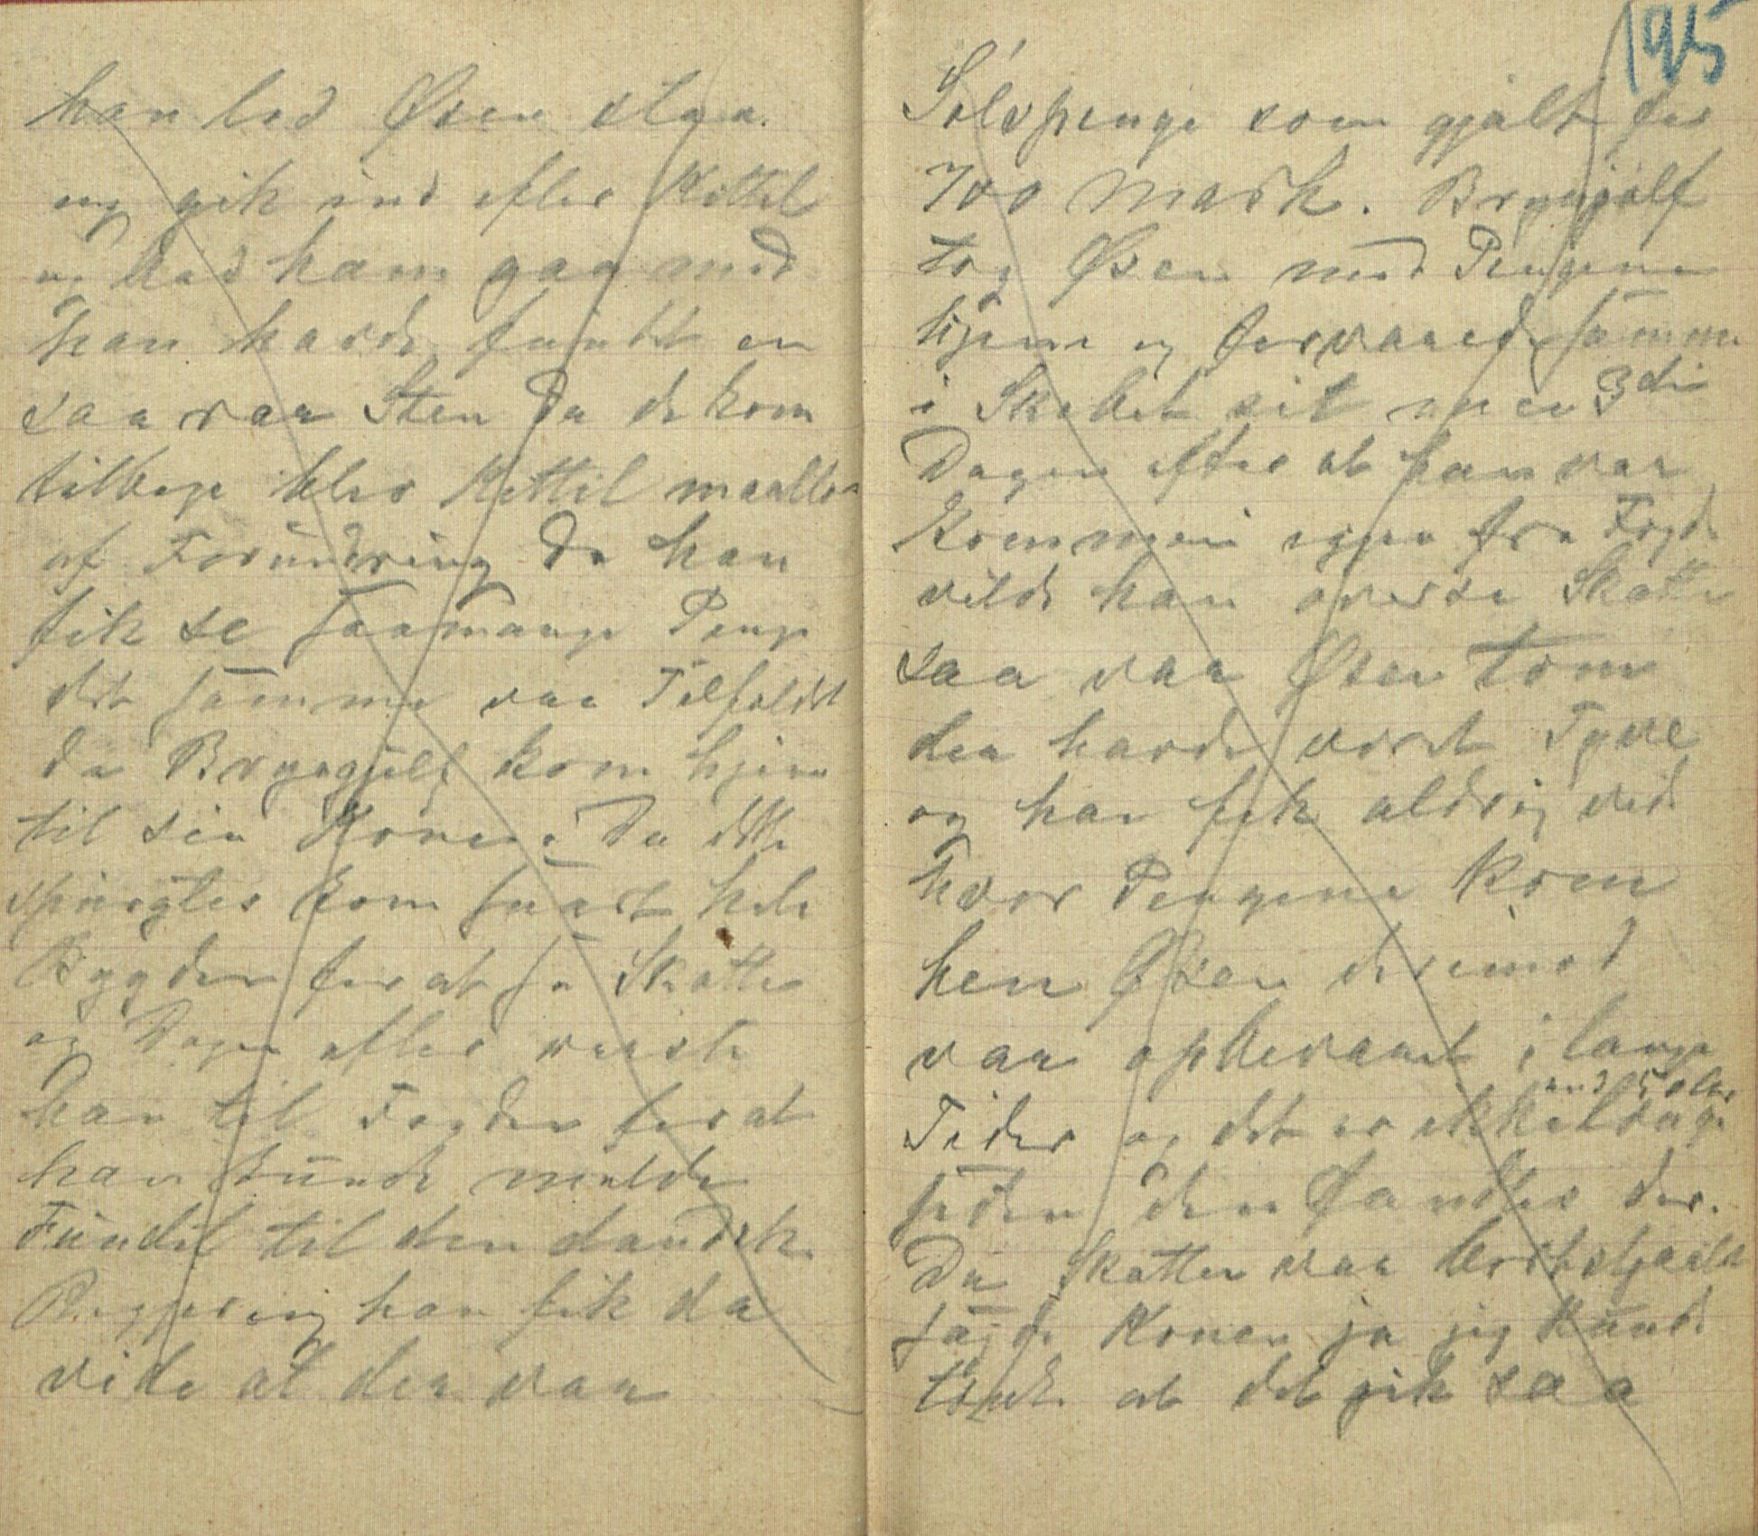 han lod Øsen staa.
og gik ind efter Kittil
og bad ham gaa med
han havde fundt en
saa raa Sten da de kom
tilbage blev Kittil maallös
af Forundring da han
fik se saamange Penge
det samme var Tilfeldet
da Brynjulf kom hjem
til sin Kone. Da dette
spurgtes kom snart hele
Bygden for at se Skatten
og Dagen efter reiste
han til Fogden for at
han kunde melde
Fundet til den danske
Regjering han fik da
vide at der var
195
Sölvpenge som gjalt for
700 Mark. Brynjolf
tog Øsen med Pengene
hjem og forvarede samme
i Skabet sit men 3die
Dagen efter at han var
Kommen igjen fra Fogd
vilde han overse Skatten
saa var Øsen tom
der havde været Tyve
og han fik aldrig vide
hvor Pengene kom
hen Øsen derimod
var opbevaret i lange
Tider og det er ikke længe
siden den fandtes der.
Da Skatten var bortstjaalet
sagde Konen ja jeg kunde
tænke at det gik saa